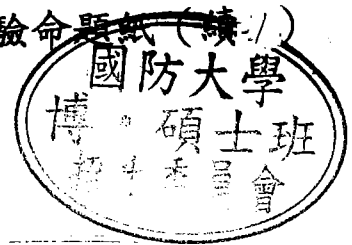 驗命題紙(續1)
國防大學
博.碩士班
招生委員會